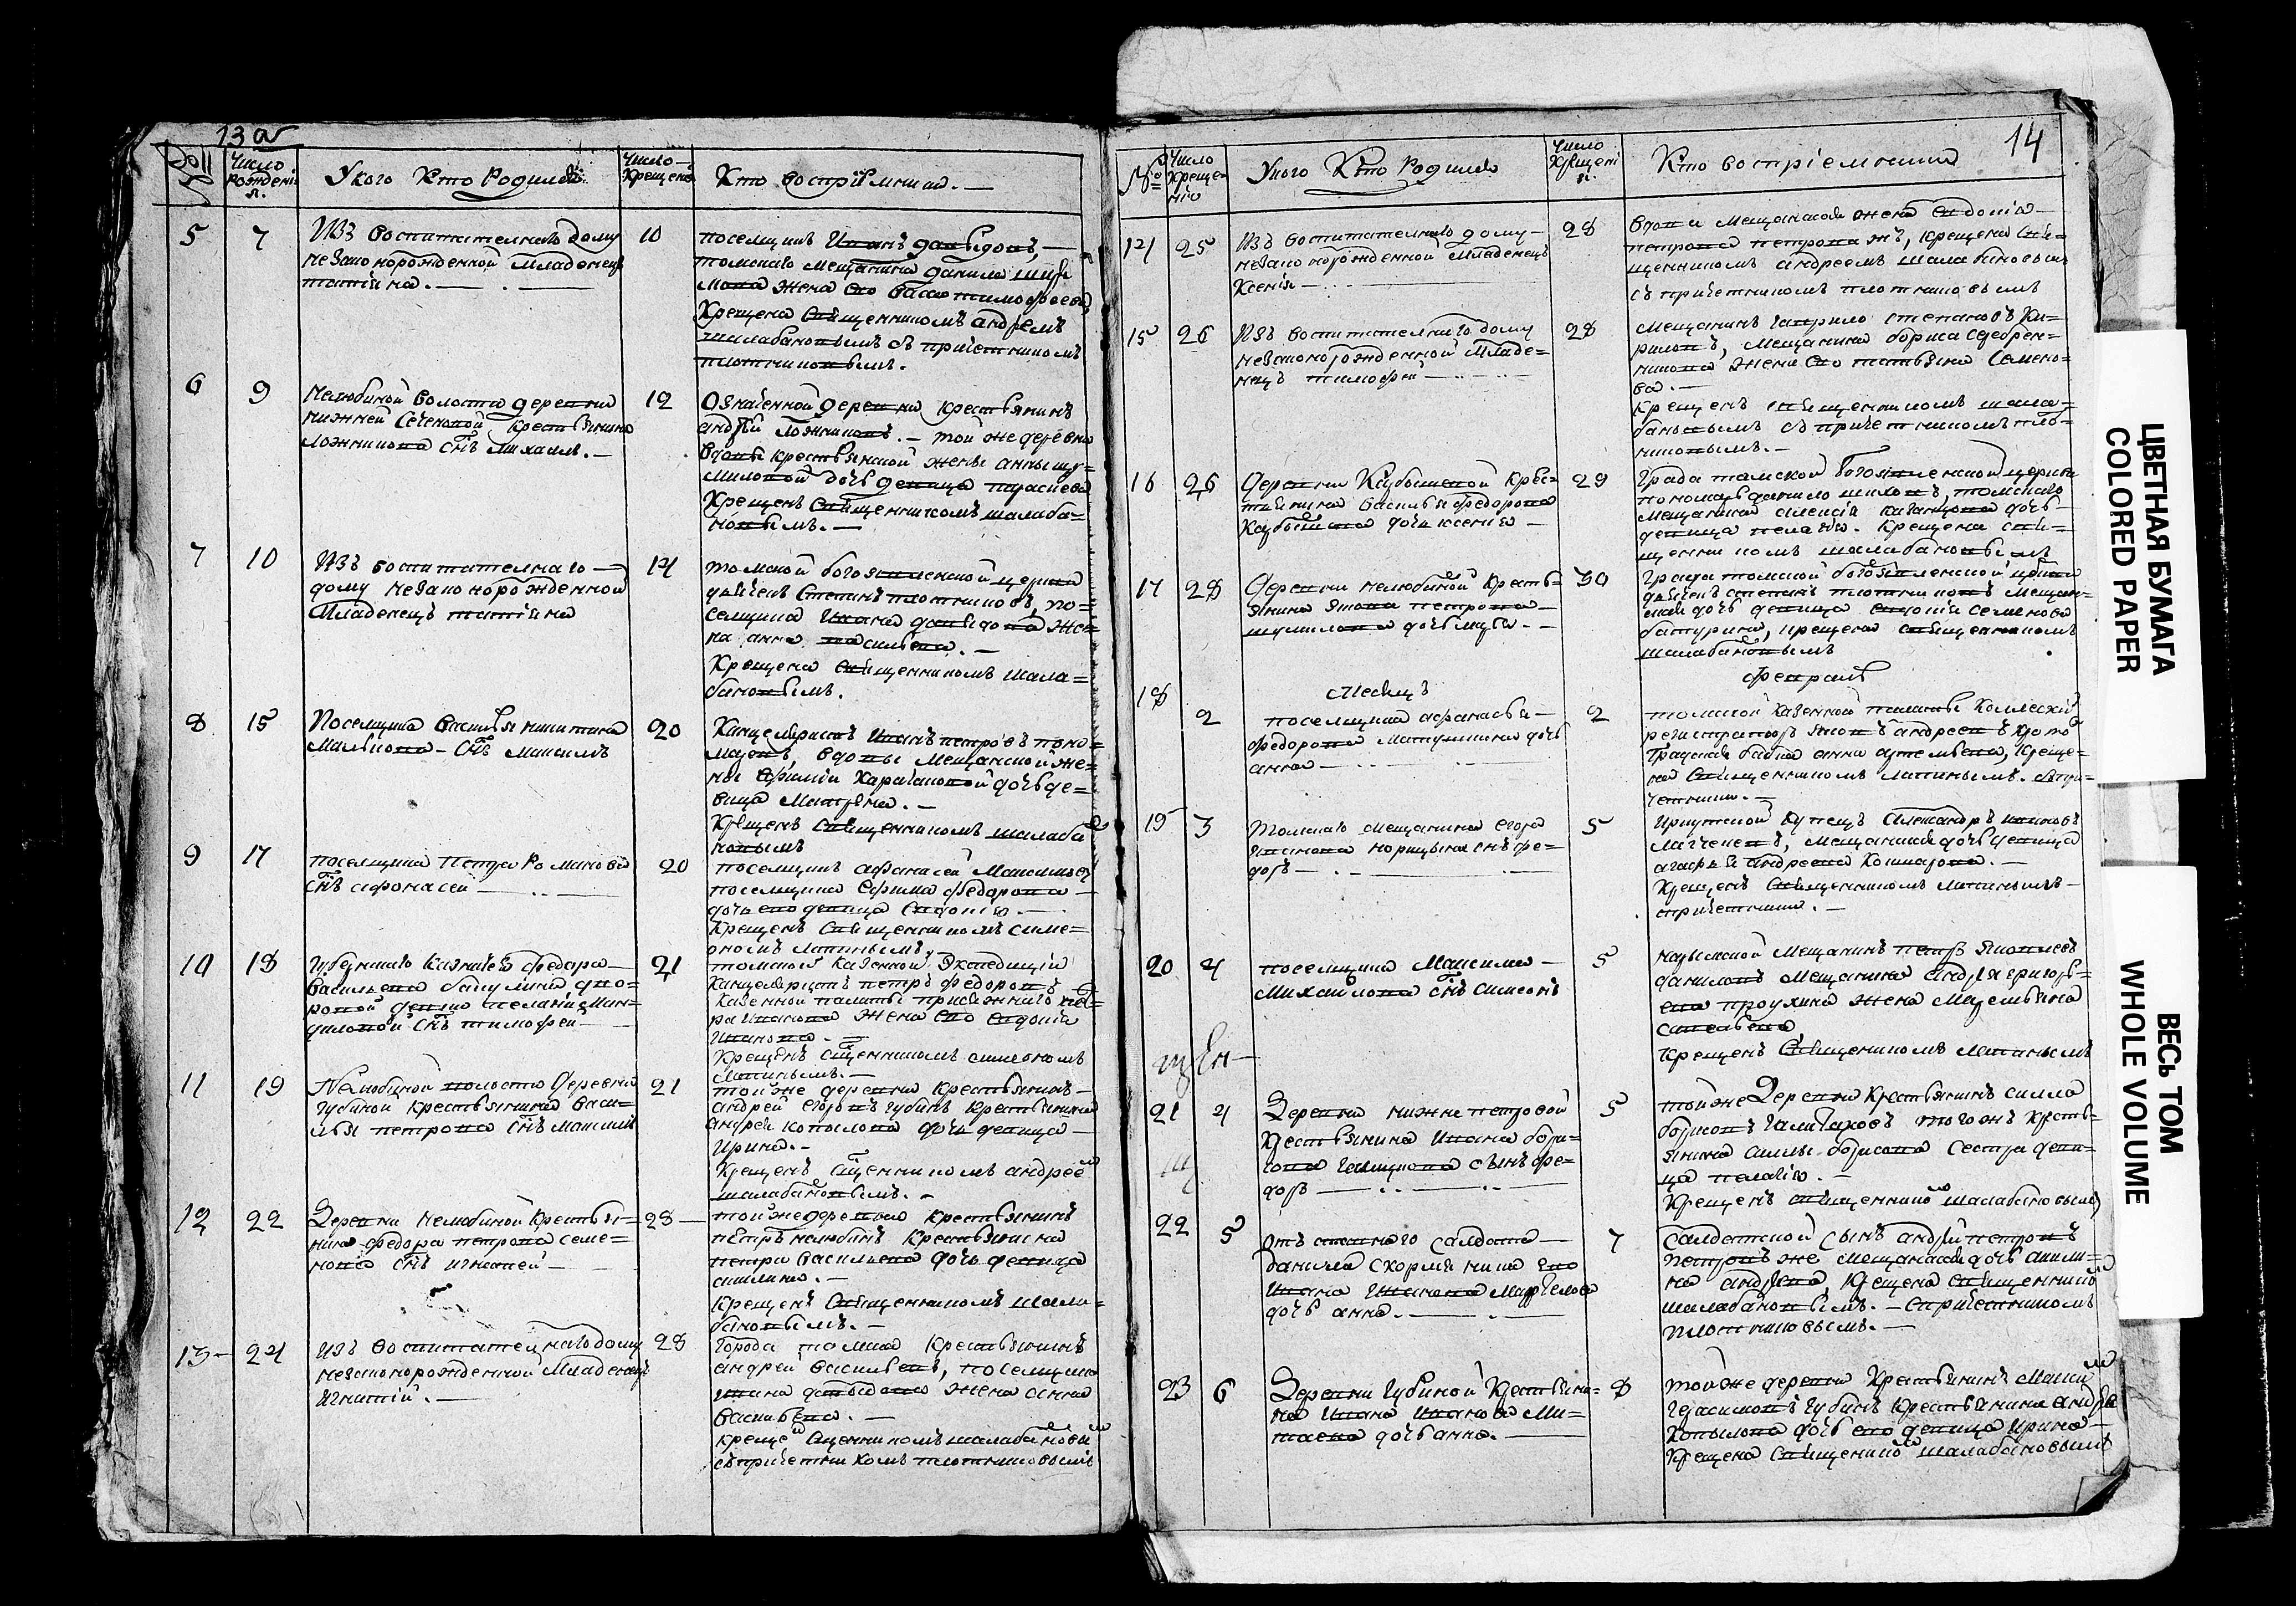 13 а
№
Число рожденія.
У кого Кто Родился
Число Крещенія
Кто воспріимники.
5
7
Изъ воспитателнаго дому
незаконорожденной Младенецъ
татіяна.
10
поселщикъ Иванъ давыдовъ,
томскаго мещанина данила
жена его Васса тимофеева,
Крещена Священникомъ андреемъ
шалабановымъ съ причетникомъ
плотниковымъ.
6
9
Нелюбиной волости деревни
нижней Сеченовой крестьянина
ложникова снъ михаилъ.
12
Означенной деревни крестьянинъ
андрей ложниковъ. той же деревни
вдовы крестьянской жены анны шу-
миловой дочь девица параскева
Крещенъ Священникомъ шалаба-
новымъ.
7
10
Изъ воспитателнаго
дому незаконорожденной
Младенецъ татіяна
14
томской богоявленской церкви
дьячекъ Степанъ плотниковъ, по-
селщика Ивана давыдова Же-
на анна васильева.
Крещена Священникомъ шала-
бановымъ.
8
15
Поселщика Василья никитина
Малькова снъ максимъ
20
Канцеляристъ Иванъ петровъ поно-
маревъ, вдовы мещанской же-
ны Ефиміи Карачаковой дочь де-
вица Матрена.
Крещенъ Священникомъ шалаба
новымъ
9
17
поселщика Петра Романова
снъ афонасей
20
поселщикъ афанасей Максимовъ
поселщика Ефима федорова
дочь его девица Евдокія.
Крещенъ Священникомъ симе-
ономъ Лапинымъ,
10
18
Губернскаго казначея федора
Васильева бакулина дво-
ровой девки пелагеи Ман-
диловой снъ тимофей
21
томской Казенной Экспедиціи
Канцеляристъ петръ федоровъ
казенной палаты присяжнаго
Иванова жена его евдокія
Иванова.
Крещенъ Сщенникомъ симеономъ
Лапинымъ.
11
19
Нелюбиной волости деревни
Губиной крестьянина Васи-
лья петрова снъ максимъ
21
той же деревни крестьянинъ
андрей егоровъ губинъ крестьянина
андрея копылова дочь девица
Ирина.
Крещенъ Сщенникомъ андреем
шалабановымъ.
12
22
Деревни нелюбиной крестья-
нина федора петрова семе-
нова снъ игнатей
28
той же деревни крестьянинъ
петръ нелюбинъ крестьянина
петра васильева дочь девица
акилина.
Крещенъ Священникомъ шала-
бановымъ.
13
24
Изъ воспитателнаго дому
незаконорожденной Младенецъ
Игнатій.
28
Города томска крестьянинъ
андрей васильевъ, поселщика
ивана давыдова жена анна
васильева.
крещен Сщенникомъ шалабановым
съ причетникомъ плотниковымъ
14
№
Число Крещенію
У кого Кто Родился
Число Крещенія.
Кто воспріемники
14
25
Изъ воспитателнаго дому
незаконорожденной Младенецъ
Ксенія
28
вдова мещанская жена Евдокія
петрова петрова жъ, крещена Свя-
щенникомъ андреемъ шалабановымъ
съ причетникомъ плотниковымъ
15
26
Изъ воспитателнаго дому
незаконорожденной Младе-
нецъ тимофей
28
Мещанинъ гаврило степановъ Ки-
риловъ, мещанина бориса серебрен-
никова жена его татьяна Семено-
ва.
Крещенъ священникомъ шала-
бановымъ съ причетникомъ плот-
никовымъ.
16
26
Деревни Кубышевой Кре-
стьянина василья федорова
дочь ксенія
29
Града томской богоявленской церкви
пономарь данило шиховъ, томскаго
мещанина алексія дочь
девица пелагія. Крещена Свя-
щенникомъ шалабановымъ
17
28
Деревни нелюбиной Кресть-
янина якова петрова
шумилова дочь
30
Града томской богоявленской цркви
дьячекъ степанъ плотниковъ мещан-
ская дочь девица евдокія семенова
батурина, крещена священникомъ
шалабановымъ
Месяцъ
февраль
18
2
поселщика афанасья
федорова Матушкина дочь
анна
2
томской казенной палаты Коллежскій
регистраторъ яковъ андреевъ
градская бабка анна артемьева, креще-
на священникомъ лапинымъ. съ при-
четники.
19
3
томскаго мещанина егора
иванова корицына снъ фе-
доръ
5
Иркутской купецъ александръ
мещанская дочь девица
агафья андреева Кошкарова.
Крещенъ Священникомъ Лапинымъ
с причетники.
20
4
поселщика Максима
Михайлова снъ Симеонъ
5
нарымской мещанинъ петръ яковлевъ
даниловъ мещанина андрея григорь-
ева жена Маремьяна
савельева,
Крещенъ Священикомъ Лапинымъ
21
4
Деревни нижне петровой
крестьянина Ивана бори-
сова сынъ фе-
доръ
5
той же Деревни крестьянинъ силла
борисовъ того жъ кресть-
янина силлы борисова сестра деви-
ца пелагія.
Крещенъ священнико шалабановым
22
5
отъ ставнаго салдата
данила скормякина
Ивана Иванова
дочь анна.
7
салдатской сынъ андрей петровъ
петровъ же мещанская дочь акили-
на андреева, Крещена Священнико
шалабановымъ. с причетникомъ
плотниковымъ.
23
6
Деревни губиной крестьяни-
на Ивана Иванова Ми-
дочь анна.
8
той же деревни крестьянинъ
герасимовъ губинъ крестьянина андрея
копылова дочь его девица Ирина
крещена священнико шалабановымъ
ЦВЕТНАЯ БУМАГА
COLORED PAPER
ВЕСЬ ТОМ
WHOLE VOLUME